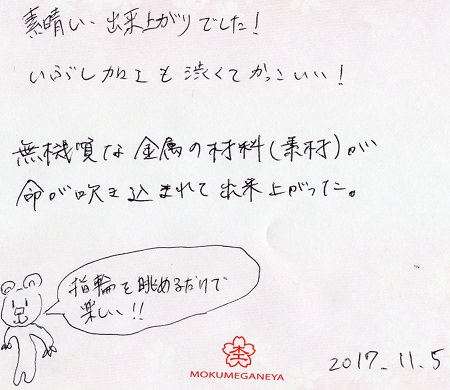 素晴い、出来上がりでした！
いぶし加工も渋くてかっこいい！
無機質な金属の材料(素材)が
命が吹き込まれて出来上がった。
指輪を眺めるだけで
楽しい!!
MOKUMEGANEYA
2017.11.5